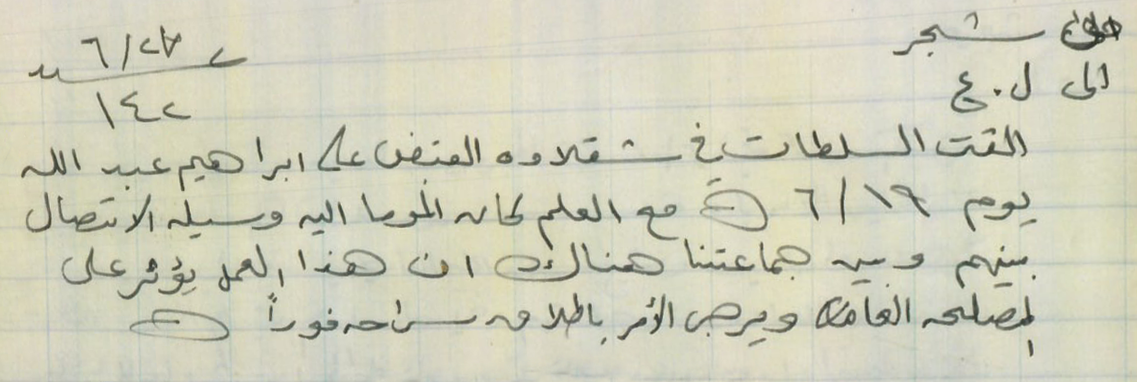 من شجر ٦/٢٧
الى ل.ع ١٤٢
القت السلطات في شقلاوه القبض على ابراهيم عبد الله
يوم ٦/١٩ مع العلم كان الموما اليه وسيله الاتصال
بينهم وبين جماعتنا هناك ان هذا العمل يؤثر على
المصلحه العامه ويرجى الأمر باطلاق سراحه فوراً